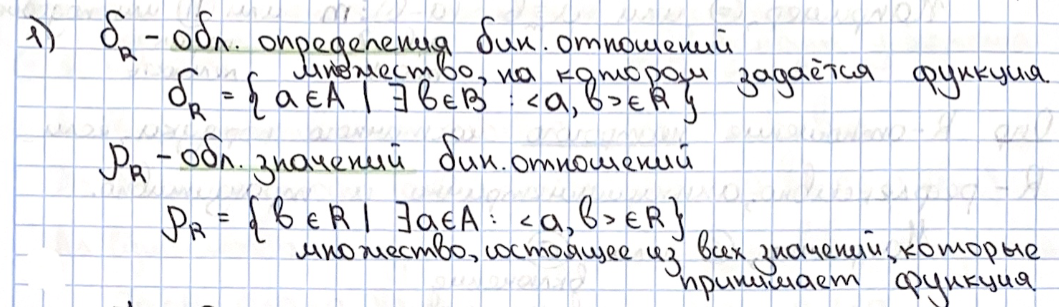 1) δ_R - обл. определения бин. отношений
множество, на котором задаётся функция.
δ_R = { a ∈ A | ∃ в ∈ B : <a, в> ∈ R }
ρ_R - обл. значений бин. отношений
ρ_R = { в ∈ R | ∃ a ∈ A : <a, в> ∈ R }
множество, состоящее из всех значений, которые
принимает функция